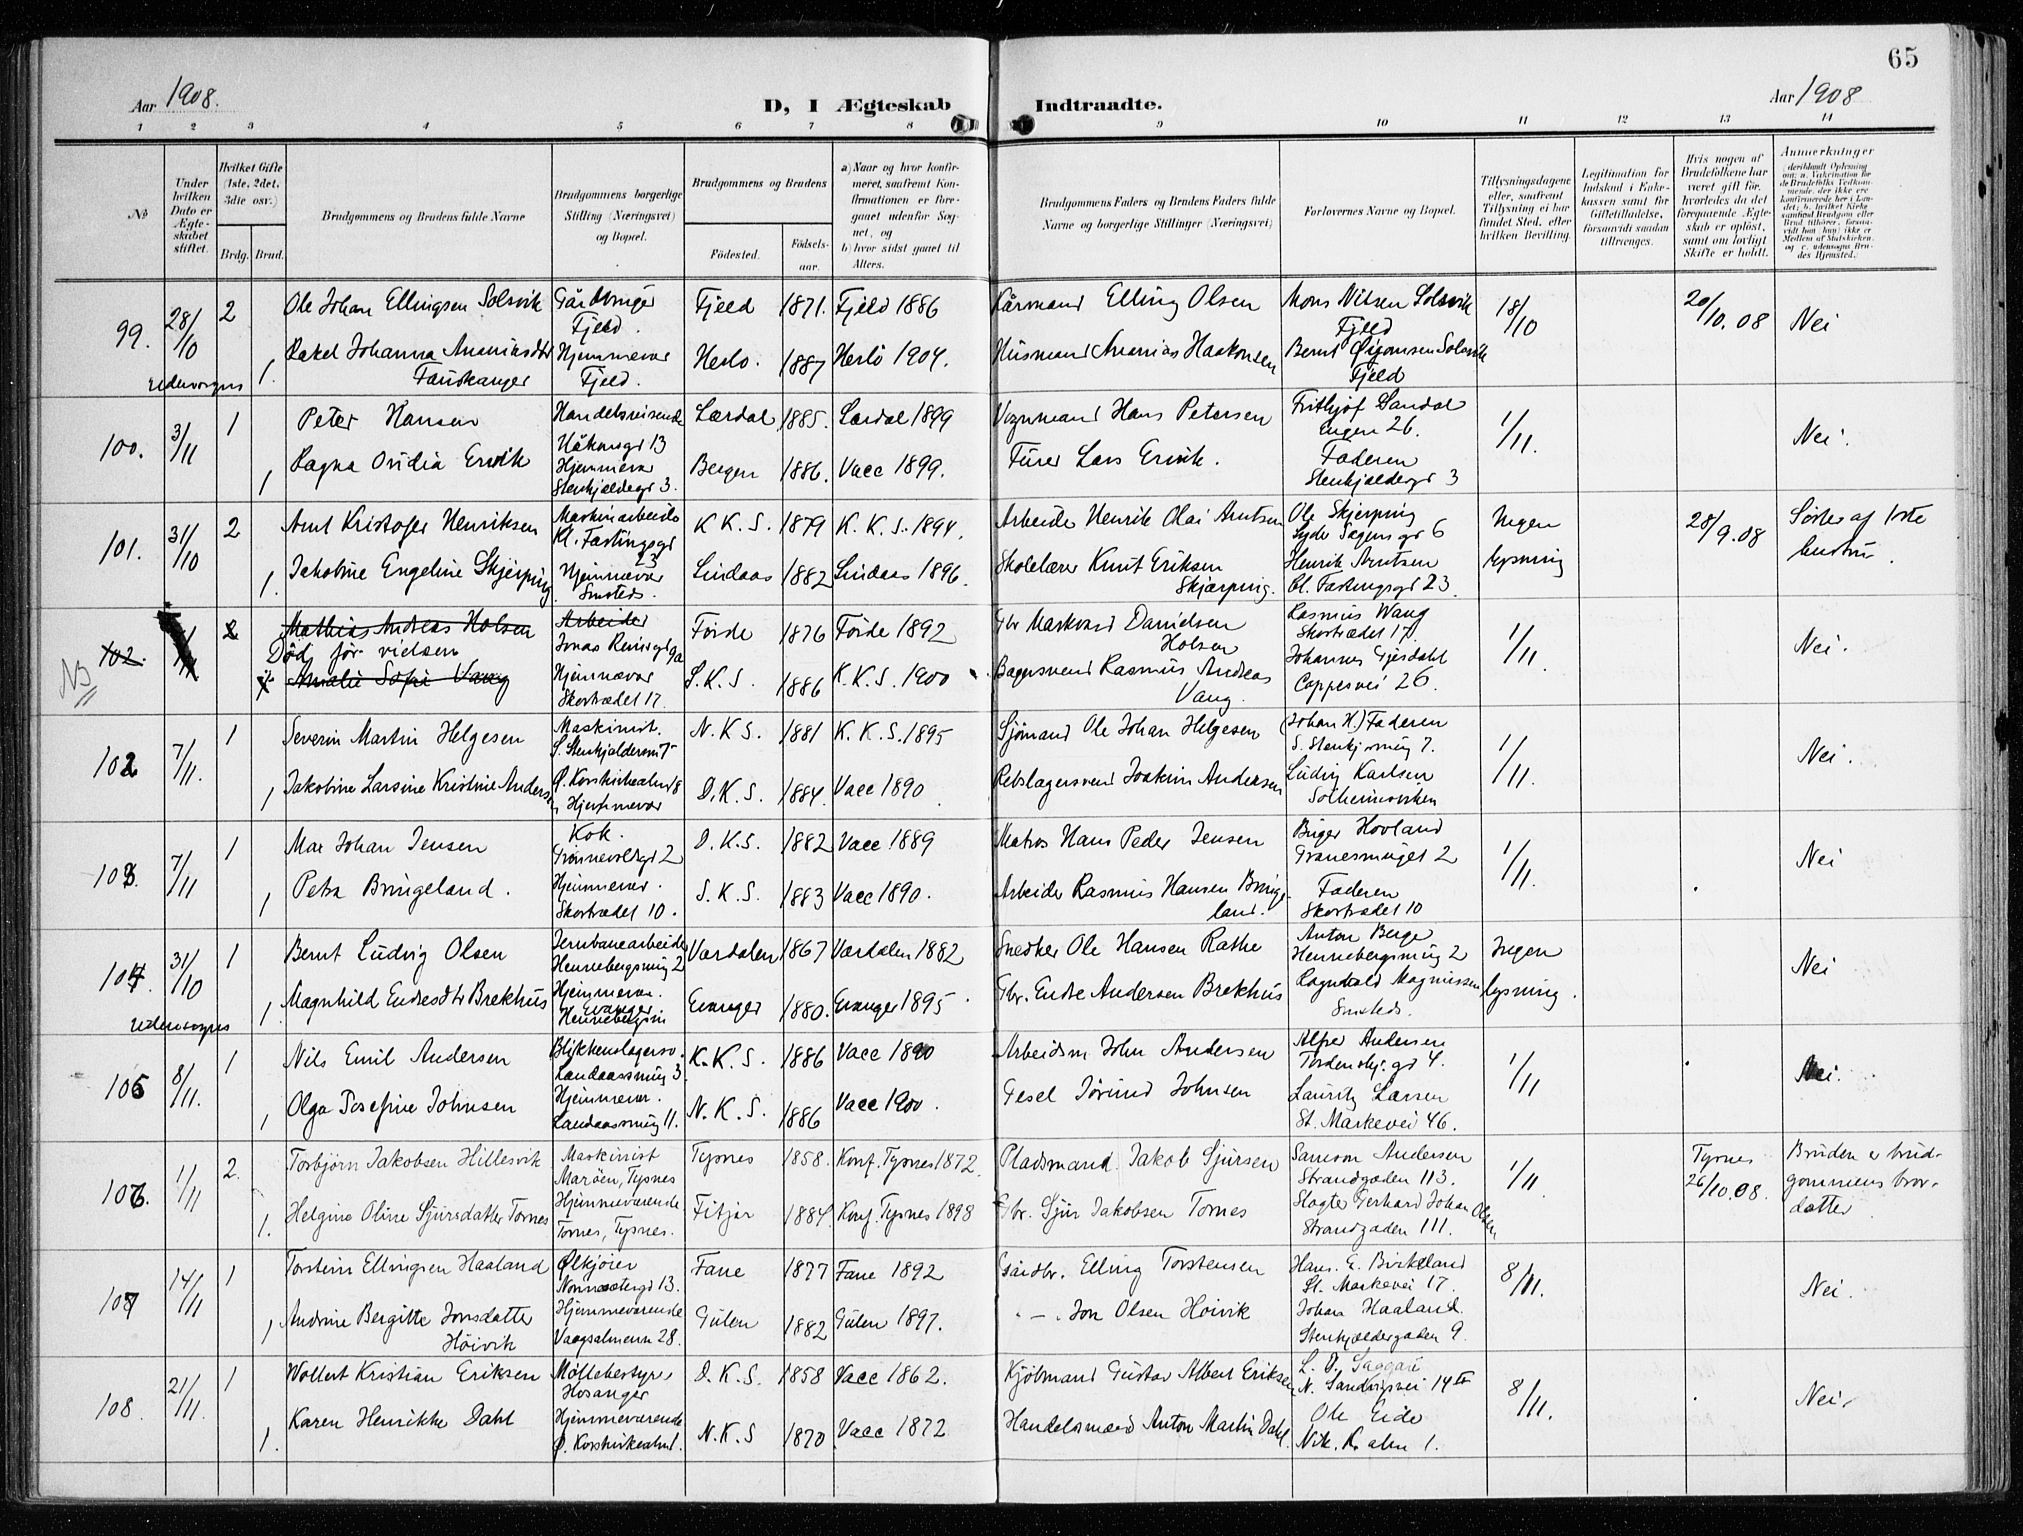 65
Aar 1908.
D, I Ægteskab Indtraadte.
Aar 1908
1 2 3 4 5 6 7 8 9 10 11 12 13 14
№
Under hvilken Dato er Ægteskabet stiftet.
Hvilket Gifte (1ste, 2det, 3die osv.)
Brdg. Brud.
Brudgommens og Brudens fulde Navne
Brudgommens borgerlige Stilling (Næringsvei) og Bopæl.
Brudgommens og Brudens
Fødested.
Fødsels-aar.
a) Naar og hvor konfirmeret, saafremt Konfirmationen er foregaaet udenfor Sognet, og
b) hvor sidst gaaet til Alters.
Brudgommens Faders og Brudens Faders fulde Navne og borgerlige Stillinger (Næringsvei)
Forlovernes Navne og Bopæl.
Tillysningsdagene eller, saafremt Tillysning ei har fundet Sted, efter hvilken Bevilling.
Legitimation for Indskud i Enkekassen samt for Giftetilladelse, forsaavidt saadan tiltrænges.
Hvis nogen af Brudefolkene har været gift før, hvorledes da det foregaaende Ægteskab er opløst, samt om lovligt Skifte er holdt.
Anmerkninger
99. 28/10 2 Ole Johan Ellingsen Solsvik Gårdbruger Fjeld. Fjeld 1871. Fjeld 1886 Kårmand Elling Olsen Mons Nilsen Solsvik Fjeld 18/10 20/10. 08 Nei
udensogns 1. Rakel Johanna Ananiasdtr Fauskanger Hjemmevær Fjeld. Herlo. 1887 Herlö 1904. Husmand Ananias Haakonsen Bernt Solsvik Fjeld
100. 3/11 1 Peter Hansen Handelsreisende Håkonsgt 13 Lærdal 1885. Lærdal 1899 Vognmand Hans Petersen Frithjof Sandal Engen 26. 1/11. Nei.
1 Ragna Ovidia Ervik Hjemmevær Stenkjeldergt 3. Bergen 1886. Vacc 1899. Furer Lars Ervik. Faderen Stenkjeldergt 3
101. 31/10 2 Arnt Kristofer Henriksen Maskinarbeider Kl. Fastingsgt 23 K K. S. 1879 K. K. S. 1894. Arbeider Henrik Olai Arntsen Ole Skjerping Lyder Sagensgt 6 Ingen 28/9. 08 Søster af 1ste hustru
1. Jakobine Engeline Skjerping Hjemmevær Smsteds. Lindaas 1882 Lindaas 1896. Skolelærer Knut Eriksen Skjærping. Henrik Arntsen Cl. Fastingsgt 23. lysning
NB 102. 2 Mathias Andreas Holsen Arbeider Jonas Reinsgt 9a Förde 1876 Förde 1892 Gbr Markvard Danielsen Holsen Rasmus Wang Skostrædet 17. 1/11. Nei.
Död för vielsen
Amalie Sofie Vang Hjemmevær Skostrædet 17. S. K. S. 1886 K. K. S. 1900 Bagersvend Rasmus Andreas Vang. Johannes Gjesdahl Coppesvei 26.
102 7/11. 1 Severin Martin Helgesen Maskinist. S. Stenkjeldersm 7 N. K S. 1881 K. K. S. 1895 Sjömand Ole Johan Helgesen (Johan H.) Faderen S. Stenkj.smug 7. 1/11. Nei.
1 Jakobine Larsine Kristine Andersen Ø. Korskirkealm 8 Hjemmevær D. K. S. 1884. Vacc 1890 Rebslagersvend Joakim Andersen Ludvig Karlsen Solheimsviken
103. 7/11 1 Max Johan Jensen Kok. Grönnevoldgt 2 D. K. S. 1882 Vacc 1889 Matros Hans Peder Jensen Birger Hovland Granesmuget 2 1/11. Nei
1 Petra Bringeland. Hjemmevær. Skostrædet 10. S. K. S. 1883 Vacc 1890. Arbeider Rasmus Hansen Bringeland. Faderen Skostrædet 10
104. 31/10 1 Bernt Ludvig Olsen Jernbanearbeider Hennebergsmug 2 Værdalen 1867 Værdalen 1882 Snedker Ole Hansen Rathe Anton Berge Hennebergsmug 2 Ingen Nei
udensogns 1 Magnhild Endresdtr Brekhus Hjemmevær. Evanger Hennebergsm Evanger 1880. Evanger 1895. Gbr. Endre Andersen Brekhus Ragnvald Magnussen Smsteds. lysning.
105 8/11. 1 Nils Emil Andersen Blikkenslagersv. Landaassmug 3 K. K. S. 1886 Vacc 1890 Arbeidsm. John Andersen Alfred Andersen Tordenskj. gt 4. 1/11 Nei.
1 Olga Josefine Johnsen Hjemmevær. Landaassmug 11. N. K. S. 1886 Vacc 1900. Gesel Jörund Johnsen Lauritz Larsen St. Markevei 46.
106. 1/11 2. Torbjørn Jakobsen Hillesvik Maskinist Marøen, Tysnes Tysnes 1858. Konf. Tysnes 1872. Pladsmand Jakob Sjursen Samson Andersen Strandgaden 113. 1/11. Tysnes 26/10. 08. Bruden er brudgommens brordatter
1. Helgine Oline Sjursdatter Tornes Hjemmeværende Tornes, Tysnes. Fitjar 1884 Konf. Tysnes 1898 Gbr. Sjur Jakobsen Tornes Slagter Gerhard Johan Olsen Strandgaden 111.
107 14/11 1 Torstein Ellingsen Haaland Ølkjører Nonnesetergt 13. Fane 1877 Fane 1892 Gårdbr. Elling Torstensen Hans. E. Birkeland St. Markevei 17. 8/11. Nei.
1 Andrine Bergitte Jonsdatter Höivik Hjemmeværende Vaagsalmenn 28. Gulen 1882 Gulen 1897. " — . Jon Olsen Höivik Johan Haaland. Stenkjeldergaden 9.
108. 21/11. 1 Wollert Kristian Eriksen Møllebestyrer Hosanger D. K. S. 1858 Vacc 1862. Kjöbmand Gustav Albert Eriksen N. Sandvigsvei 14 8/11. Nei.
1. Karen Henrikke Dahl Hjemmeværende Ø. Korskirkealm 1. N. K. S 1870 Vacc 1872 Handelsmand Anton Martin Dahl. Ole Eide Nik. K. alm 1.